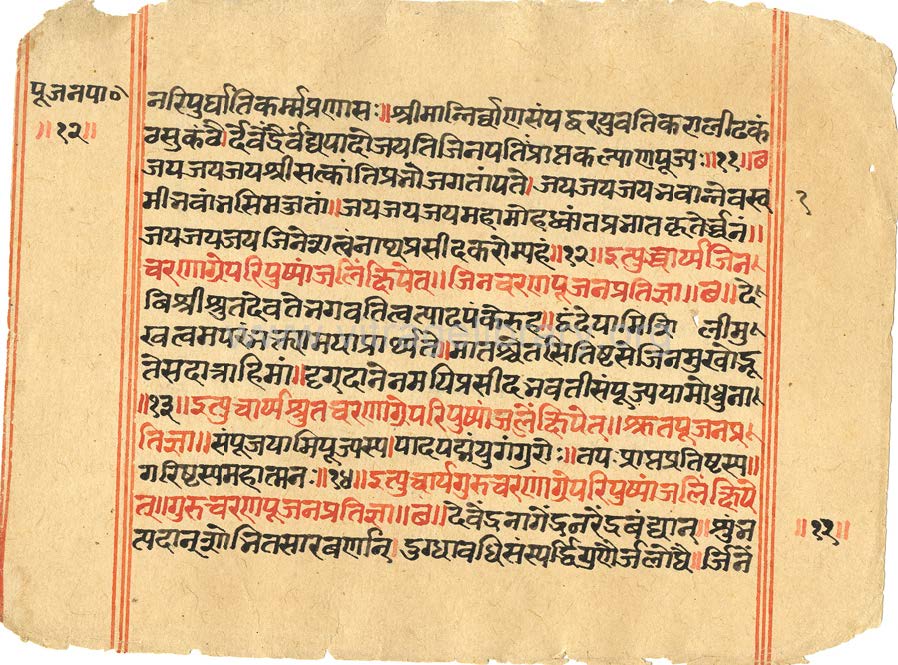 पूजनपा॰
॥१२॥
नरिपुर्घातिकर्म्मप्रणासः॥श्रीमान्निर्व्वाणसंपद्वरयुवतिकरालीढकं
वसुकंठैर्देवेंद्रैर्वंद्यपादो जयतिजिनपतिःप्राप्तकल्याणपूज्यः॥११॥ब
जयजयजयश्रीसत्कांतिप्रभोजगतांपते।जयजयजयभवानेवस्व
मीभवांभसिमज्जतां॥जयजयजयमहामोहध्वांतप्रभातकृतेर्च्चनं॥
जयजयजयजिनेशत्वंनाथप्रसीदकरोम्यहं॥१२॥इत्युच्चार्यजिन
चरणाग्रेपरिपुष्पांजलिंक्षिपेत॥जिनचरणपूजनप्रतिज्ञा॥ब॥दे
विश्रीश्रुतदेवतेभगवतित्वत्पादपंकेरुह॥द्वंद्वेयामि लीमु
खत्वमपरंभक्त्यामयाप्रार्थ्यते॥मातश्चेतसितिष्ठसेजिनमुखोद्भू
तेसदात्राहिमां॥दृग्दानेनमयिप्रसीदभवतींसंपूज्ययामोधुना
॥१३॥इत्युच्चार्यश्रुतचरणाग्रेपरिपुष्पांजलिंक्षिपेत॥श्रुतपूजनप्र
तिज्ञा॥संपूजयामिपूज्यस्य।पादपद्मयुगंगुरोः॥तपःप्राप्तप्रतिष्ठस्य॥
गरिष्ठस्यमहात्मनः॥१४॥इत्युच्चार्यगुरुचरणाग्रेपरिपुष्पांजलिंक्षिपे
त्॥गुरुचरणपूजनप्रतिज्ञा॥ब॥देवेंद्रनागेंद्रनरेंद्रवंद्यान्॥शुंभ
त्पदान्शोभितसारवर्णान्।दुग्धाब्धिसंस्पर्द्धिगुणैर्जलौघै॥र्जिनें
॥१२॥